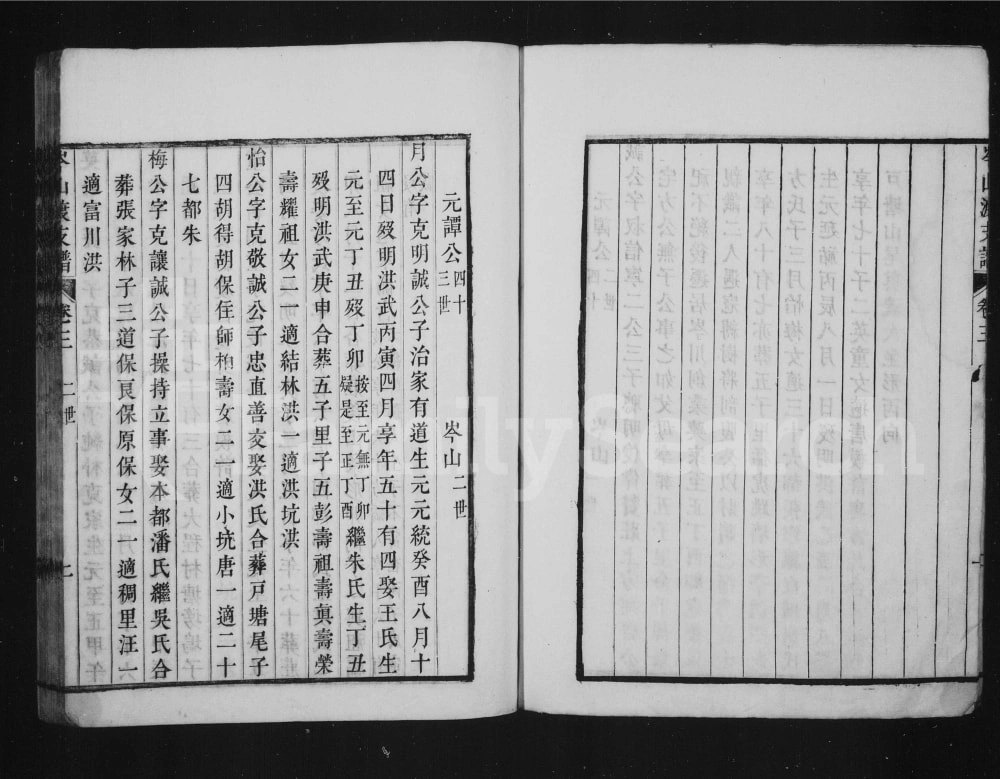 元譚公四十三世 岑山二世
月公字克明誠公子治家有道生元元統癸酉八月十
四日歿明洪武丙寅四月享年五十有四娶王氏生
元至元丁丑歿丁卯按至元無丁卯疑是至正丁酉繼朱氏生丁丑
歿明洪武庚申合葬五子里子五彭壽祖壽眞壽榮
壽耀祖女二一適結林洪一適洪坑洪
怡公字克敬誠公子忠直善交娶洪氏合葬戸塘尾子
四胡得胡保住師柏壽女二一適小坑唐一適二十
七都朱
梅公字克讓誠公子操持立事娶本都潘氏繼吳氏合
葬張家林子三道保良保原保女二一適稠里汪一
適富川洪
卷三 二世